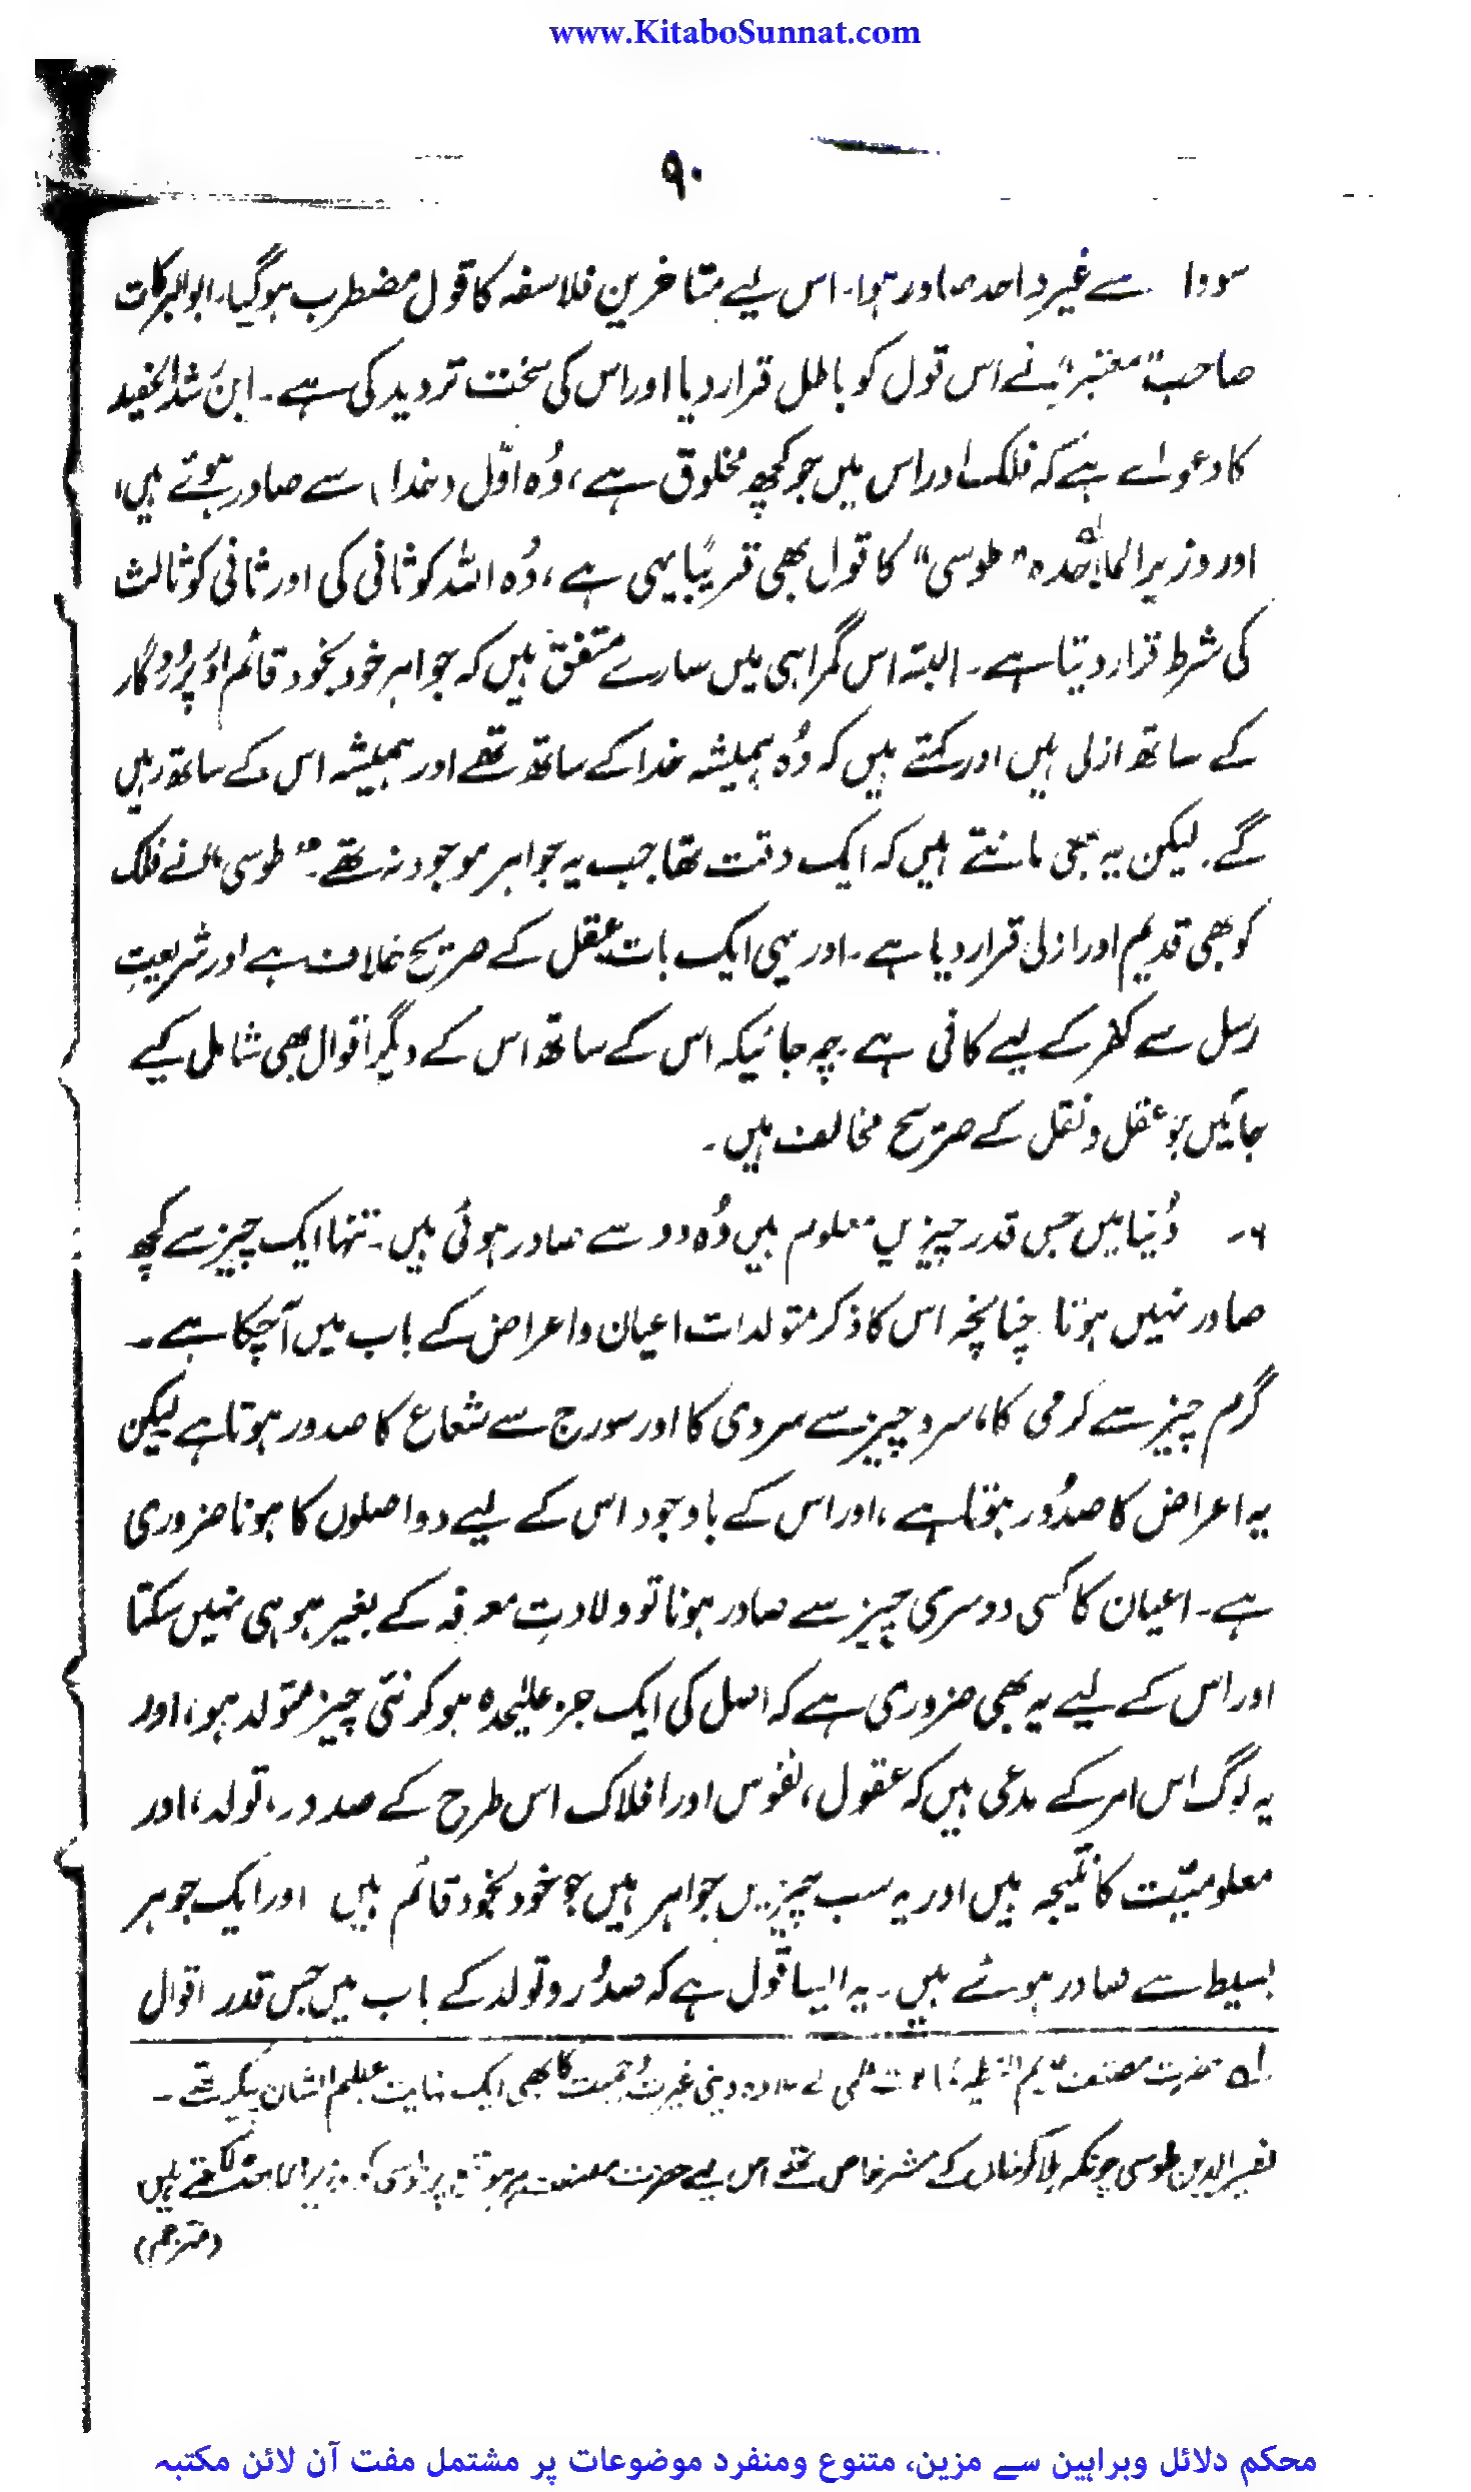 www.KitaboSunnat.com
۹۰
سے غیر واحد صادر ہوا۔ اس لیے متاخرین فلاسفہ کا قول مضطرب ہوگیا، ابوالبرکات
صاحب "معتبر" نے اس قول کو باطل قرار دیا اور اس کی سخت تردید کی ہے۔ ابن رشد الحفید
کا دعوےٰ ہے کہ فلک اور اس میں جو کچھ مخلوق ہے، وُہ اوّل (خدا) سے صادر ہوتے ہیں،
اور وزیر الملاحدہ لہ "طوسی" کا قول بھی قریبًا یہی ہے، وُہ اللہ کو ثانی کی اور ثانی کو ثالث
کی شرط قرار دیتا ہے۔ البتہ اس گمراہی میں سارے متفق ہیں کہ جواہر خود بخود قائم اور پروردگار
کے ساتھ ازلی ہیں اور کہتے ہیں کہ وُہ ہمیشہ خدا کے ساتھ تھے اور ہمیشہ اس کے ساتھ رہیں
گے۔ لیکن یہ بھی مانتے ہیں کہ ایک وقت تھا جب یہ جواہر موجود نہ تھے۔ "طوسی" نے فلک
کو بھی قدیم اور ازلی قرار دیا ہے۔ اور یہی ایک بات عقل کے صریح خلاف ہے اور شریعتِ
رسل سے کفر کے لیے کافی ہے چہ جائیکہ اس کے ساتھ اس کے دیگر اقوال بھی شامل کیے
جائیں جو عقل و نقل کے صریح مخالف ہیں۔
۶۔ دُنیا میں جس قدر چیزیں معلوم ہیں وُہ دو سے صادر ہوئی ہیں۔ تنہا ایک چیز سے کچھ
صادر نہیں ہوتا چنانچہ اس کا ذکر متولدات اعیان و اعراض کے باب میں آچکا ہے۔
گرم چیز سے گرمی کا، سرد چیز سے سردی کا اور سورج سے شعاع کا صدور ہوتا ہے لیکن
یہ اعراض کا صدُور ہوتا ہے، اور اس کے باوجود اس کے لیے دو اصلوں کا ہونا ضروری
ہے۔ اعیان کا کسی دوسری چیز سے صادر ہونا تو ولادتِ معروفہ کے بغیر ہو ہی نہیں سکتا
اور اس کے لیے یہ بھی ضروری ہے کہ اصل کی ایک جز علیٰحدہ ہو کر نئی چیز متولد ہو، اور
یہ لوگ اس امر کے مدعی ہیں کہ عقول، نفوس اور افلاک اس طرح کے صدور، تولد، اور
معلومیّت کا نتیجہ ہیں اور یہ سب چیزیں جواہر ہیں جو خود بخود قائم ہیں اور ایک جوہر
بسیط سے صادر ہوئے ہیں۔ یہ ایسا قول ہے کہ صدُور و تولد کے باب میں جس قدر اقوال
لہ حضرت مصنف دینی غیرت و حمیت کا بھی ایک نہایت عظیم الشان پیکر تھے۔
نصیر الدین طوسی چونکہ ہلاکو خاں کے مشیر خاص تھے اس لیے حضرت مصنف ہر موقع پر طوسی کو وزیر الملاحدہ لکھتے ہیں
(مترجم)
محکم دلائل وبراہین سے مزین، متنوع ومنفرد موضوعات پر مشتمل مفت آن لائن مکتبہ